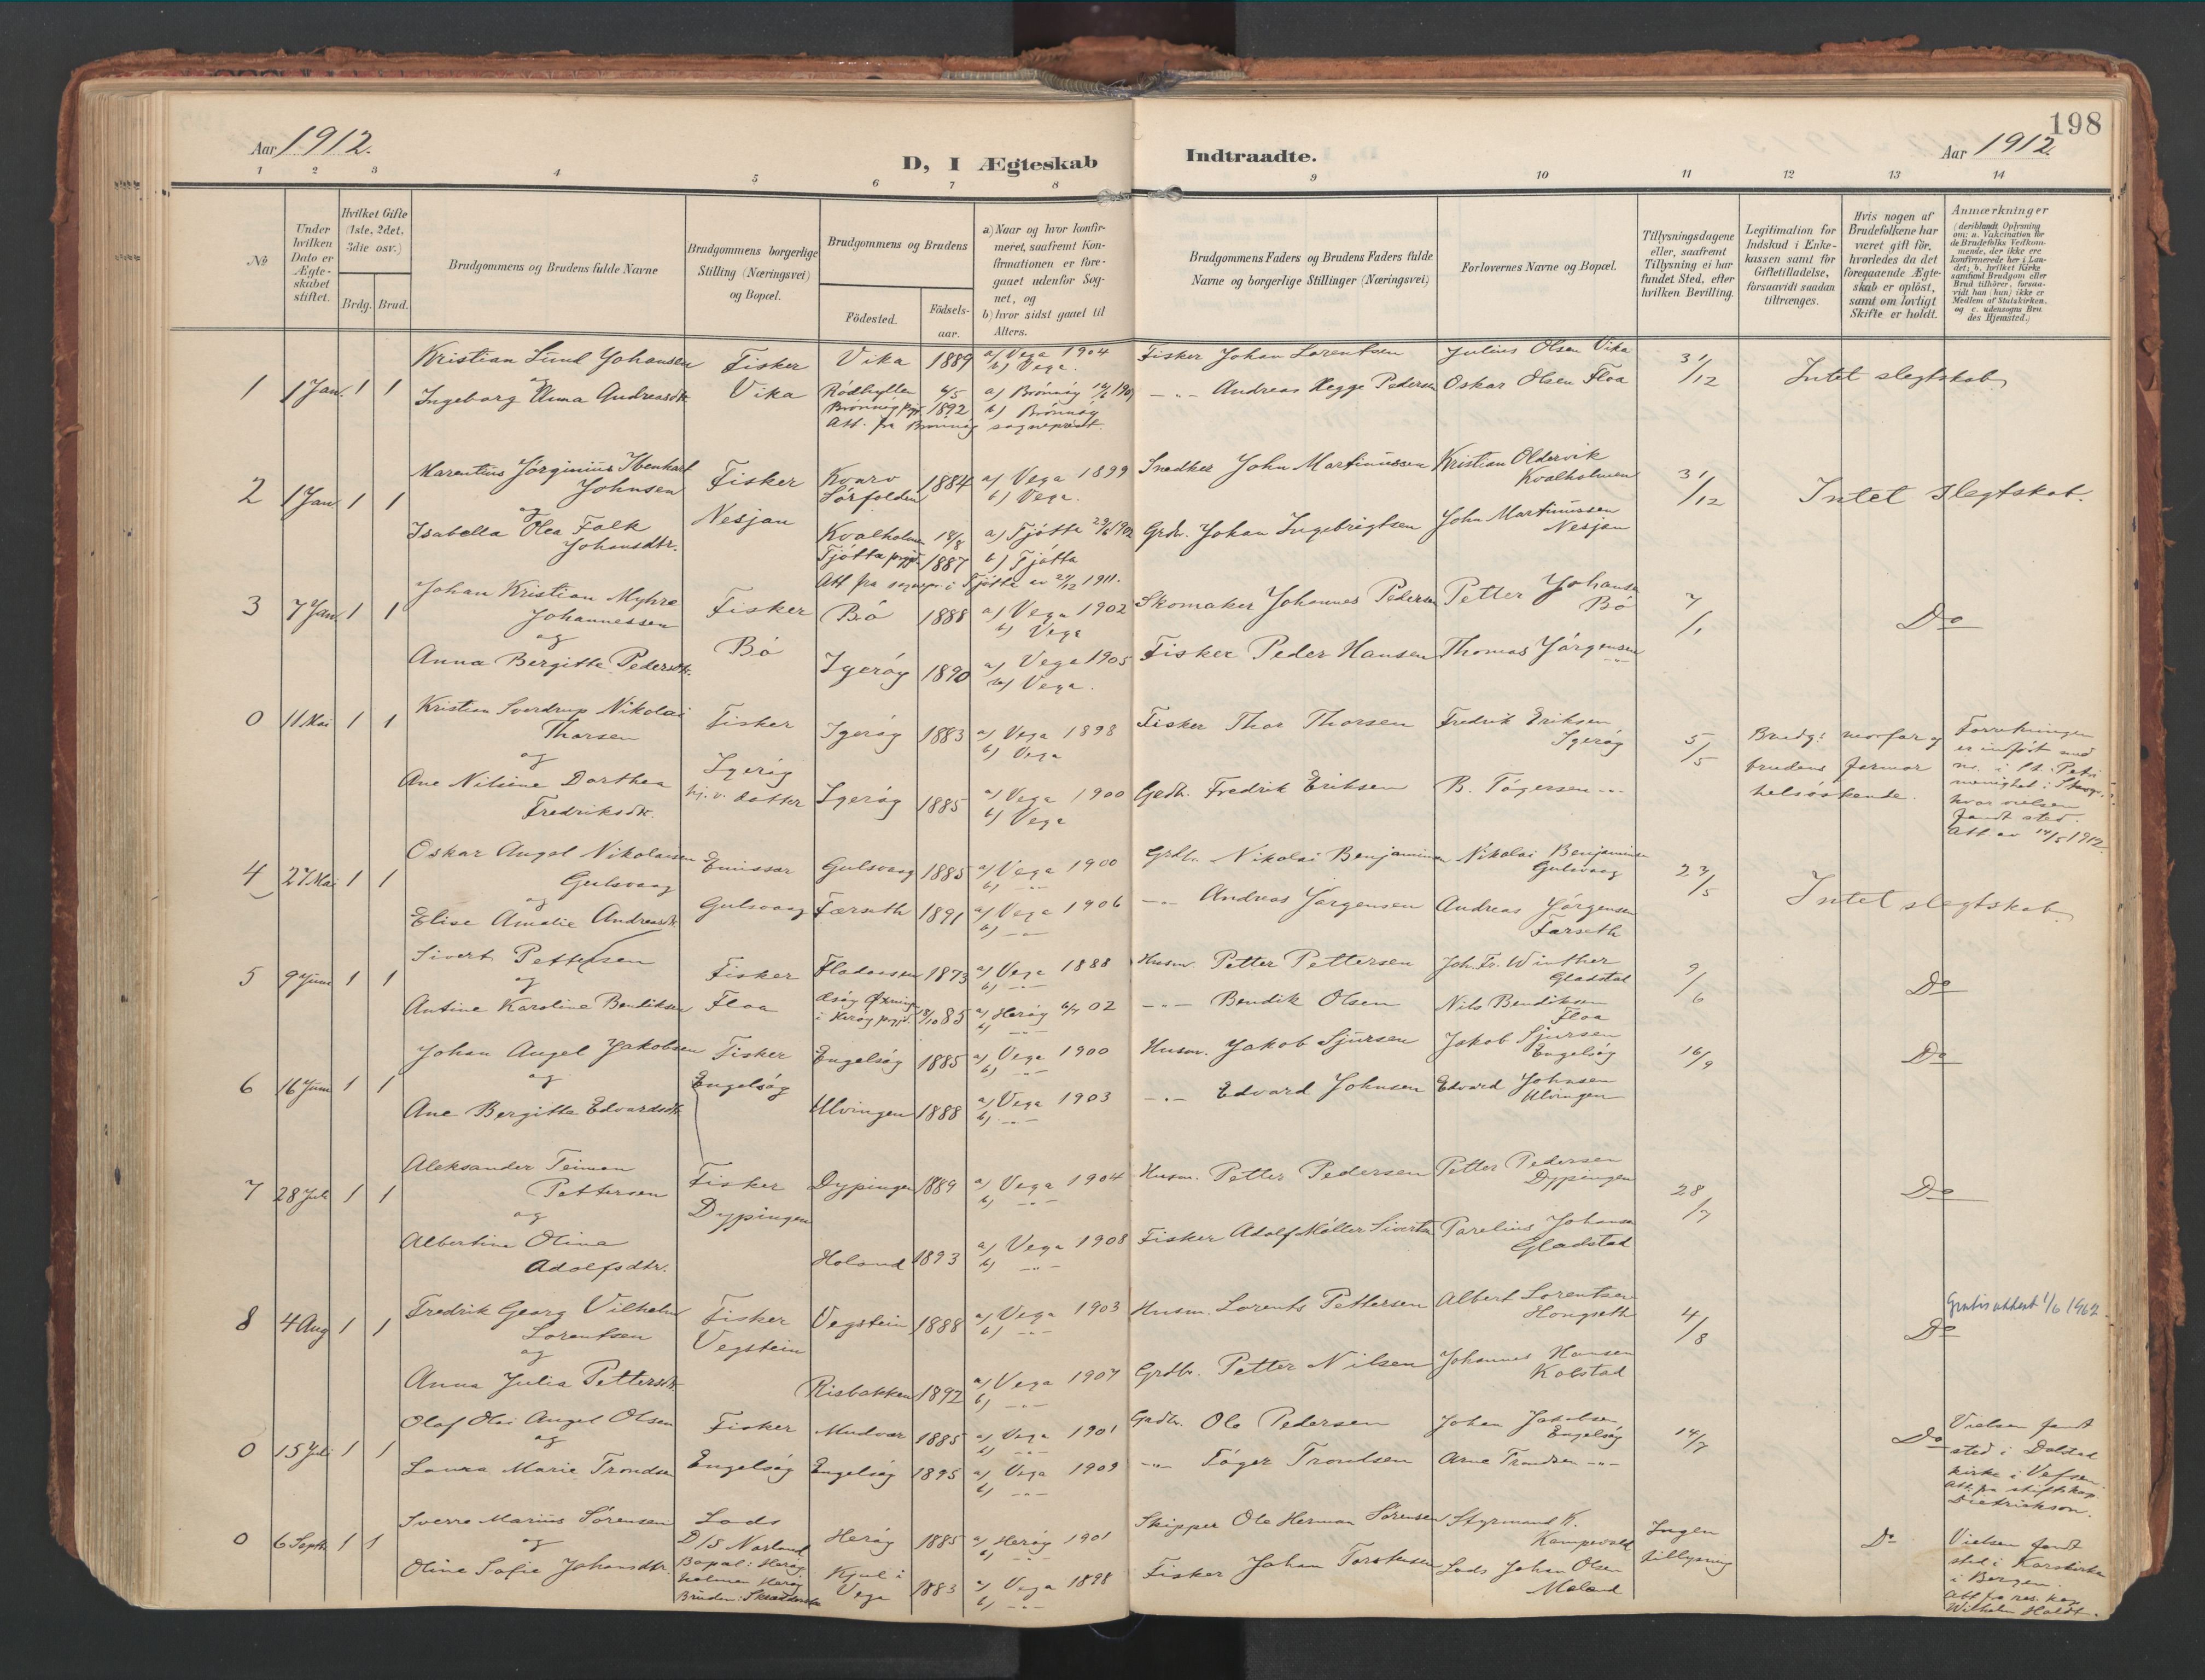 198
Aar 1912.
D, I Ægteskab Indtraadte.
Aar 1912.
1 2 3 4 5 6 7 8 9 10 11 12 13 14
No
Under hvilken Dato er Ægteskabet stiftet.
Hvilket Gifte (1ste, 2det, 3die osv.)
Brdg. Brud.
Brudgommens og Brudens fulde Navne
Brudgommens borgerlige Stilling (Næringsvei) og Bopæl.
Brudgommens og Brudens
Födested.
Födselsaar.
a) Naar og hvor konfirmeret, saafremt Konfirmationen er foregaaet udenfor Sognet, og
b) hvor sidst gaaet til Alters.
Brudgommens Faders og Brudens Faders fulde Navne og borgerlige Stillinger (Næringsvei)
Forlovernes Navne og Bopæl.
Tillysningsdagene eller, saafremt Tillysning ei har fundet Sted, efter hvilken Bevilling.
Legitimation for Indskud i Enkekassen samt for Giftetilladelse, forsaavidt saadan tiltrænges.
Hvis nogen af Brudefolkene har været gift för, hvorledes da det foregaaende Ægteskab er oplöst, samt om lovligt Skifte er holdt.
Anmærkninger (deriblandt Oplysning om: a. Vakcination for de Brudefolks Vedkommende, der ikke ere konfirmerede her i Landet; b. hvilket Kirkesamfund Brudgom eller Brud tilhörer, forsaavidt han (hun) ikke er Medlem af Statskirken, og c. udensogns Brudes Hjemsted.)
1 1 Jan. 1 1
Kristian Lund Johansen Fisker Vika 1889 a) Vega 1904 Fisker Johan Lorentsen Julius Olsen Vika 31/12 Intet slegtskab
og b) Vega.
Ingeborg Anna Andreasdtr. Vika Rødhyllen 6/5 a) Brønnøy 190 -"- Andreas Hegge Pedersen Oskar Olsen Floa
Brønnøy pgj. 1892 b) Brønnøy
Att. fra Brønnøy sogneprest.
2 1 Jan 1 1
Marentius Jørginius Ibenhart Fisker Kvarv 1884 a) Vega 1899 Snedker John Martinussen Kristian Oldervik 31/12 Intet slegtskab.
Johnsen Sørfolden b) Vega. Kvalholmen
og Nesjan
Isabella Olea Falk Kvalholmen 18/8 a) Tjøtta 1902 Grdbr. Johan Ingebrigtsen John Martinussen
Johansdtr. Tjøtta pgjd. 1887 b) Tjøtta Nesjan
Att fra sognepr. i Tjøtta av 27/12 1911.
3 7 Jan 1 1
Johan Kristian Myhre Fisker Bø 1888 a) Vega 1902 Skomaker Johannes Pedersen Petter Johansen 7/1 Do
Johannessen b) Vega Bø
og Bø
Anna Bergitte Pedersdtr. Igerøy 1890 a) Vega 1905 Fisker Peder Hansen Thomas Jørgensen
b) Vega. -"-
0 11 Mai 1 1
Kristian Sverdrup Nikolai Fisker Igerøy 1883 a) Vega 1898 Fisker Thor Thorsen Fredrik Eriksen 5/5 Brudg: morfar og
Thorsen b) Vega Igerøy brudens farmor
og Igerøy helsøskende.
Ane Nilsine Dorthea hj. v. datter Igerøy 1885 a) Vega 1900 Grdbr. Fredrik Eriksen B. Tøgersen -"-
Fredriksdtr. b) Vega
Forretningen er indført med no. i St. Petri menighet i hvor vielsen fandt sted. Att. av 14/5 1912.
4 27 Mai 1 1
Oskar Angel Nikolaisen Emissær Gulsvaag 1885 a) Vega 1900 Grdbr. Nikolai Benjaminsen Nikolai Benjaminsen 27/5 Intet slegtskab
Gulsvaag b) -"- Gulsvaag
og
Elise Amalie Andreasdtr. Gulsvaag Færseth 1891 a) Vega 1906 -"- Andreas Jørgensen Andreas Jørgensen
b) -"- Færseth
5 9 Juni 1 1
Sivert Pettersen Fisker 1873 a) Vega 1888 Husm. Petter Pettersen Joh. Fr. Winther 9/6 Do
og b) -"- Gladstad
Antine Karoline Bendiksen Floa i Herøy pgjd. 18/10 85 a) Herøy 6/7 02 -"- Bendik Olsen Nils Bendiksen
b) -"- Floa
6 16 Juni 1 1
Johan Angel Jakobsen Fisker Engelsøy 1885 a) Vega 1900 Husm. Jakob Sjursen Jakob Sjursen 16/9 Do
og b) -"- Engelsøy
Engelsøy
Ane Bergitte Edvardsdtr. Ulvingen 1888 a) Vega 1903 -"- Edvard Johnsen Edvard Johnsen
b) -"- Ulvingen
7 28 Juli 1 1
Aleksander Teiman Fisker Dypingen 1889 a) Vega 1904 Husm. Petter Pedersen Petter Pedersen 28/7 Do
Pettersen b) -"- Dypingen
og Dypingen
Albertine Olina Holand 1893 a) Vega 1908 Fisker Adolf Møller Sivertsen Parelius Johansen
Adolfsdtr. b) -"- Gladstad
8 4 Aug 1 1
Fredrik Georg Vilhelm Fisker Vegstein 1888 a) Vega 1903 Husm. Lorents Pettersen Albert Lorentsen 4/8 Do Gratisattest 1/6 1962.
Lorentsen b) -"- Hongseth
og Vegstein
Anna Julia Pettersdtr. Risbakken 1892 a) Vega 1907 Grdbr. Petter Nilsen Johannes Hansen
b) -"- Kolstad
0 15 Juli 1 1
Olaf Olai Angel Olsen Fisker Mudvær 1885 a) Vega 1901 Grdbr. Ole Pedersen Johan Jakobsen 14/7 Do
og b) -"- Engelsøy
Laura Marie Trondsen Engelsøy Engelsøy 1895 a) Vega 1909 -"- Tøger Trondsen Arne Trondsen -"-
b) -"-
Vielsen fandt sted i Dolstad kirke i Vefsen. Att. fra stiftskap. Dietrichson.
0 6 Septb 1 1
Sverre Marius Sørensen Lods Herøy 1885 a) Herøy 1901 Skipper Ole Herman Sørensen Styrmand K. Ingen Do
og D/S Norland b) -"- Kempevold tillysning
Bopæl: Herøyholmen Herøy
Oline Sofie Johansdtr. Kjul i 1883 a) Vega 1898 Fisker Johan Torstensen Lods Johan Olsen
Vega b) -"- Moland
Bruden:
Vielsen fandt sted i Korskirken i Bergen. Att. fra res. kap. Wilhelm Holdt.